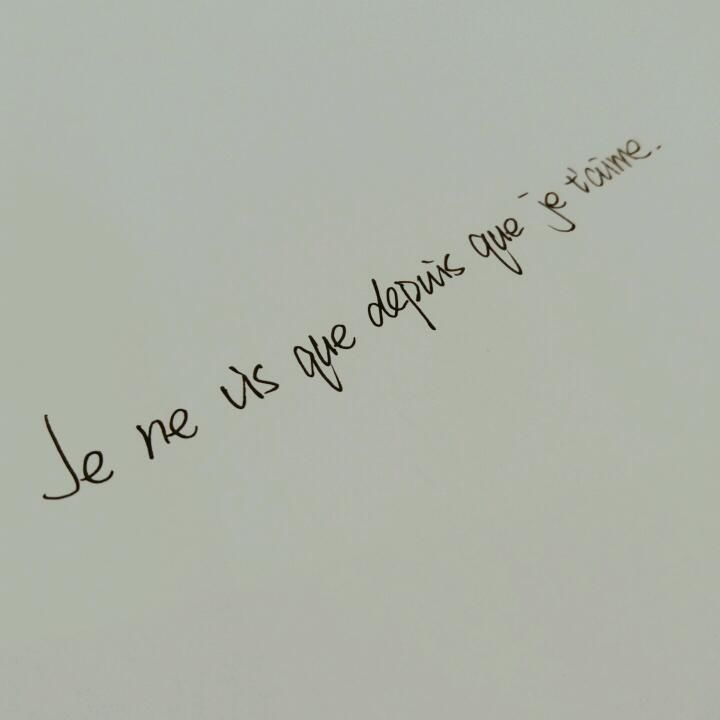 Je ne vis que depuis que je t'aime.